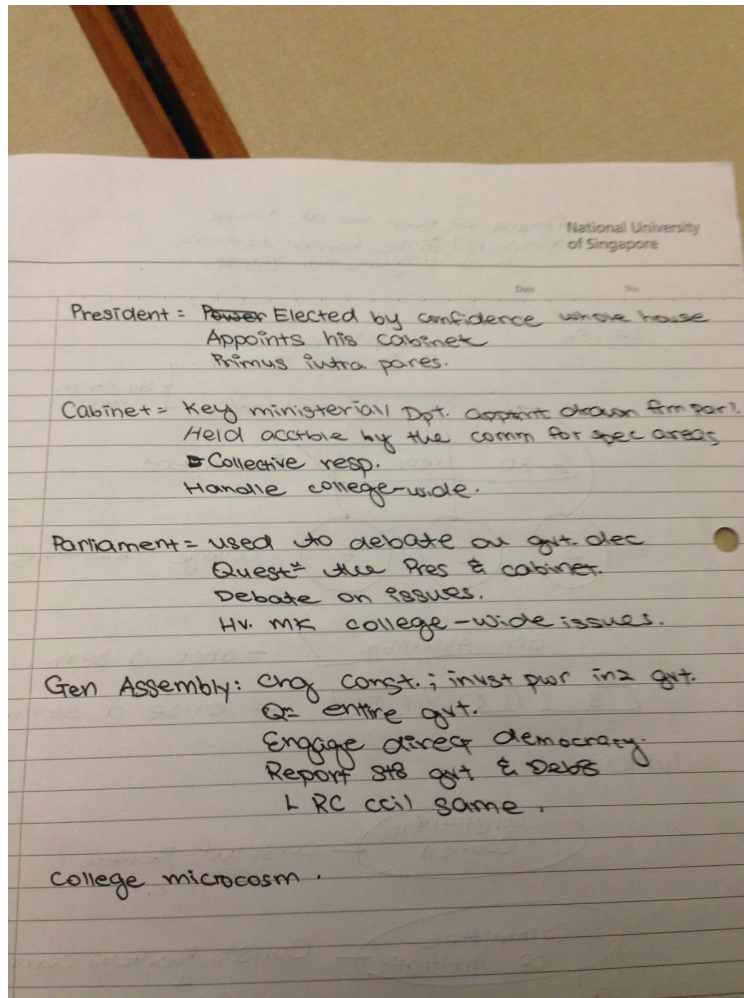 National University
of Singapore
Date
President = Elected by confidence whole house
Appoints his cabinet
Primus intra pares.
Cabinet = Key ministerial/ Dpt. appoint drawn frm parl.
Held acctble by the comm for spec areas
Collective resp.
Handle college-wide.
Parliament = used to debate on gvt. dec
Quest= the Pres & cabinet.
Debate on issues.
Hv. mk college-wide issues.
Gen Assembly: Chg const.; invst pwr in2 gvt.
Q= entire gvt.
Engage direct democracy.
Report gvt &
RC ccil same.
College microcosm.